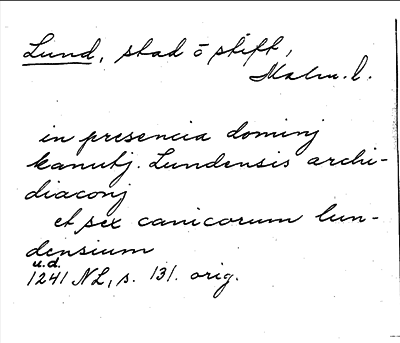 Lund, stad o stift,
Malm. l.
in presencia dominj
kanutj. Lundensis archi-
diaconj
et sex canicorum lun-
densium
u.d.
1241 NL, s. 131. orig.